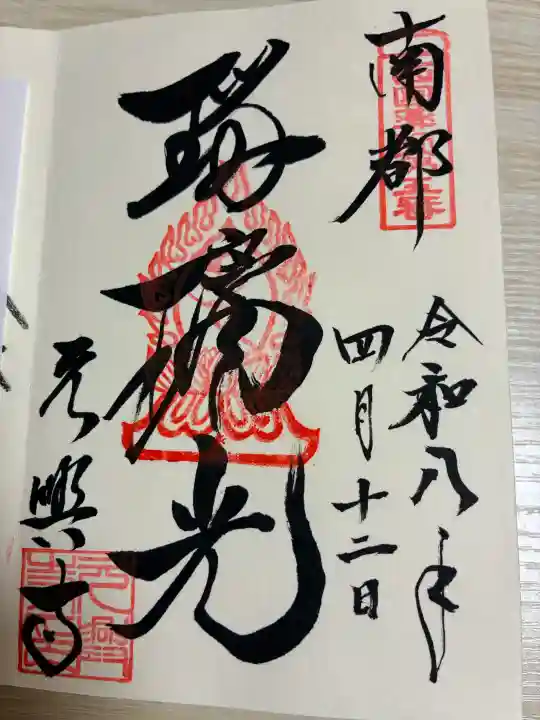 南都
令和八年
四月十二日
瑠璃光
元興寺